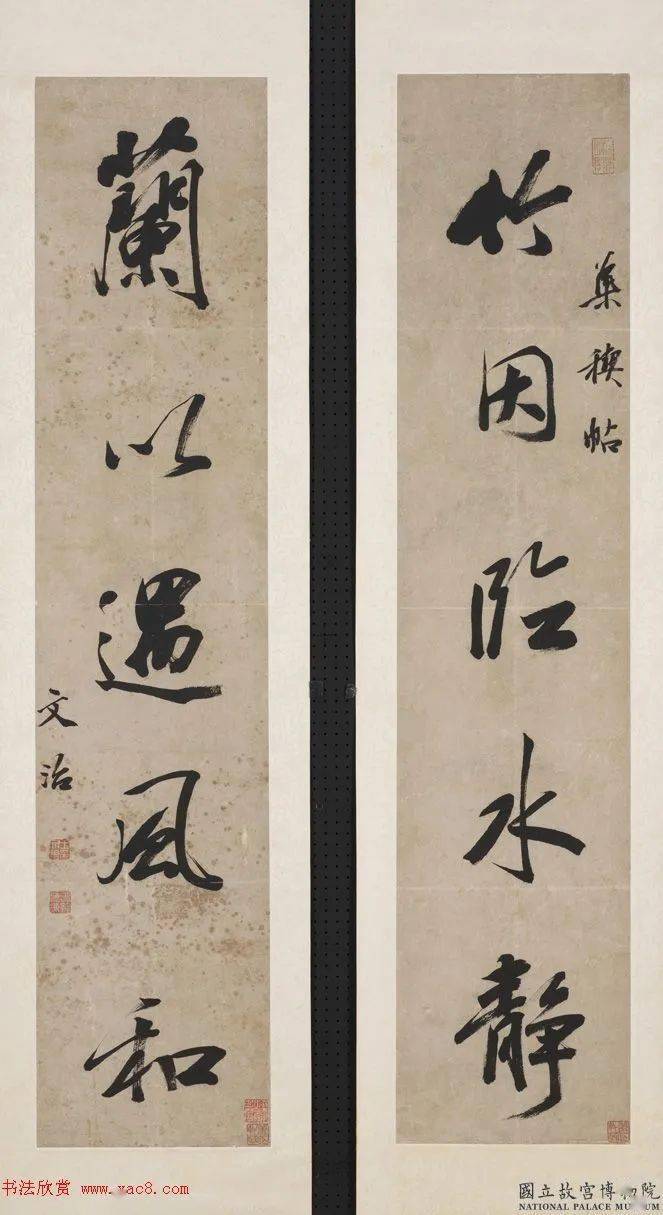 集稧帖
竹因臨水靜
蘭以遇風和
文治
書法欣赏 www.xac8.com
國立故宮博物院
NATIONAL PALACE MUSEUM